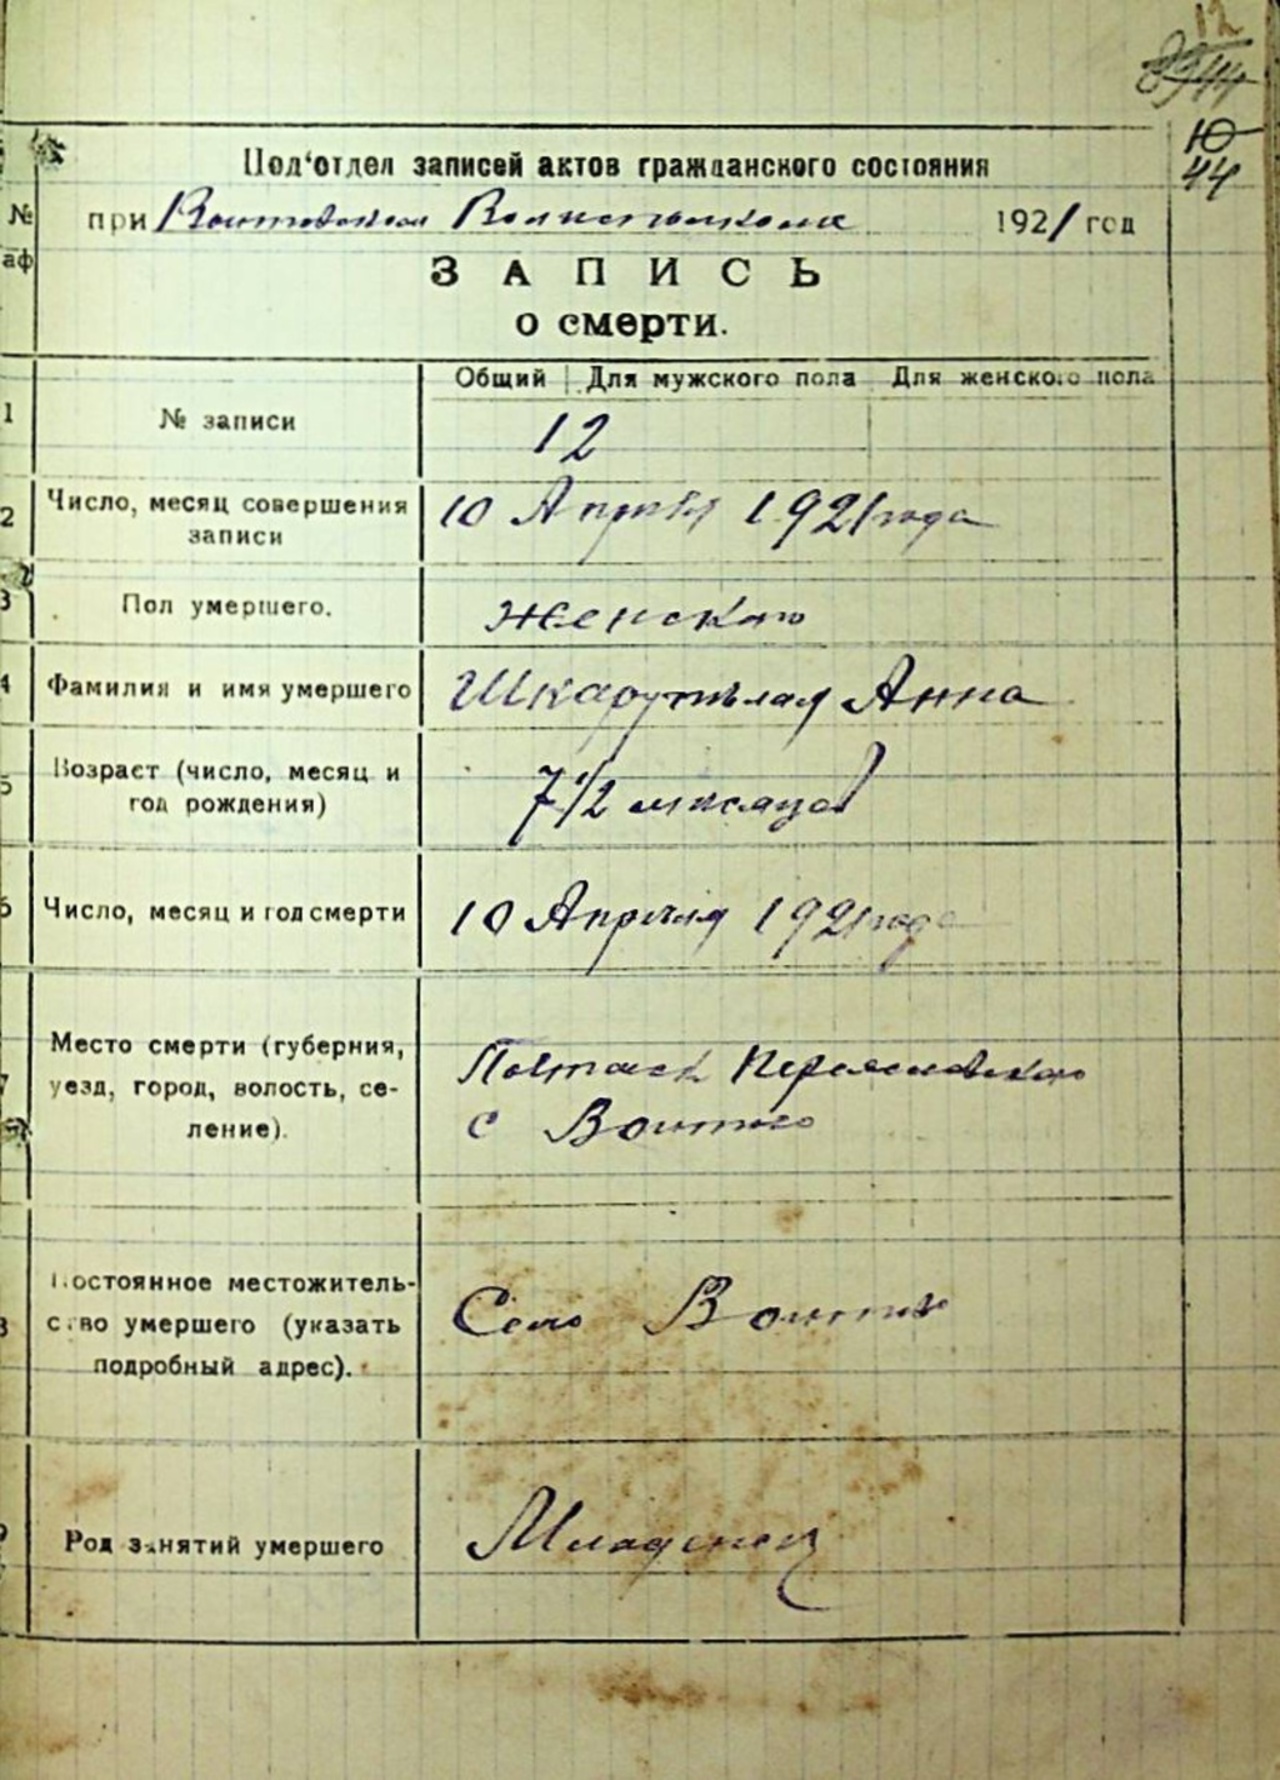 12
10
44
Под'отдел записей актов гражданского состояния
№ при Воитовском Волисполкоме 1921 год
аф
ЗАПИСЬ
о смерти.
Общий Для мужского пола Для женского пола
1 № записи 12
2 Число, месяц совершения записи 10 Апреля 1921 года
3 Пол умершего. Женского
4 Фамилия и имя умершего Анна
5 Возраст (число, месяц и год рождения) 7 1/2 месяцев
6 Число, месяц и год смерти 10 Апреля 1921 года
7 Место смерти (губерния, уезд, город, волость, селение). Полтавск Переяславского
с Воитово
8 Постоянное местожительство умершего (указать подробный адрес). Село Воитово
9 Род занятий умершего Младенец